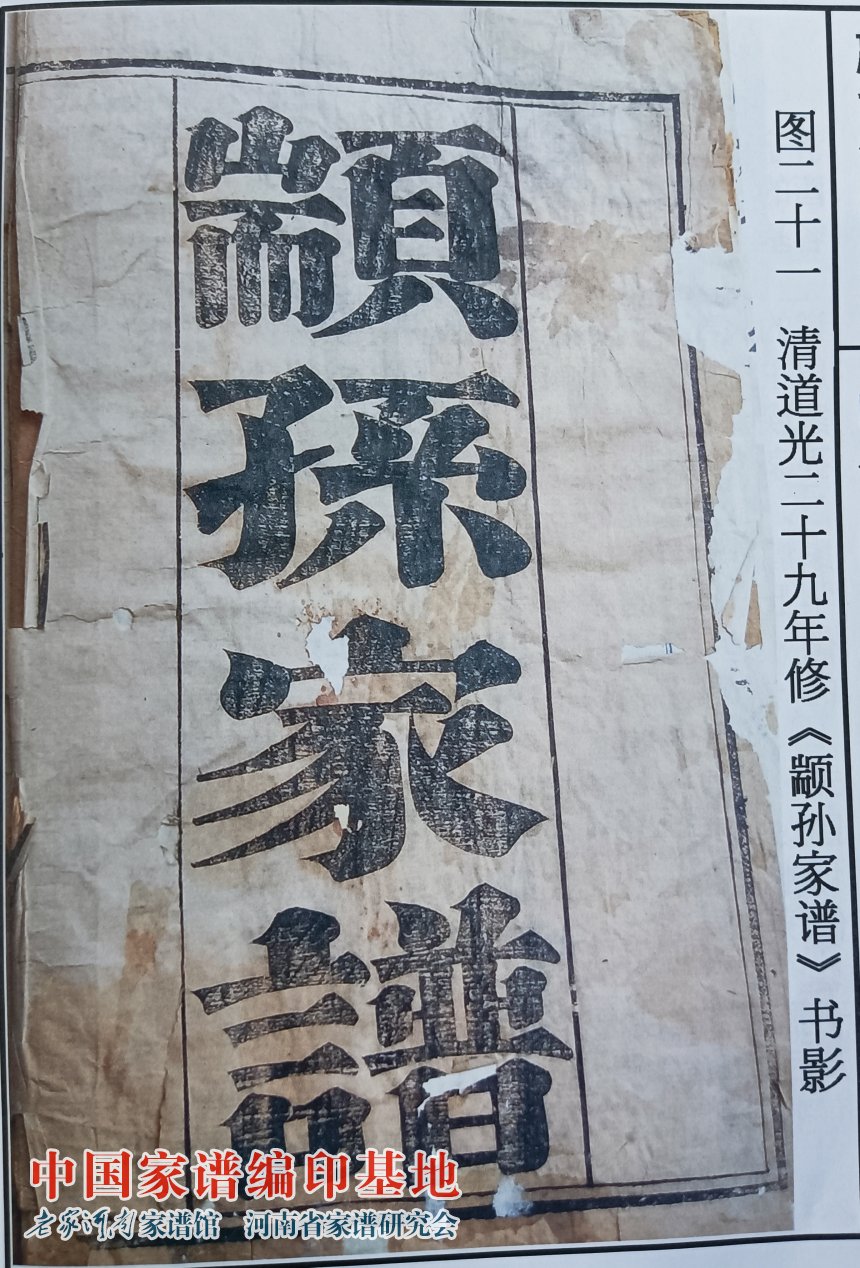 图二十一 清道光二十九年修《颛孙家谱》书影
顓孫家譜
中国家谱编印基地
老家河南家谱馆 河南省家谱研究会